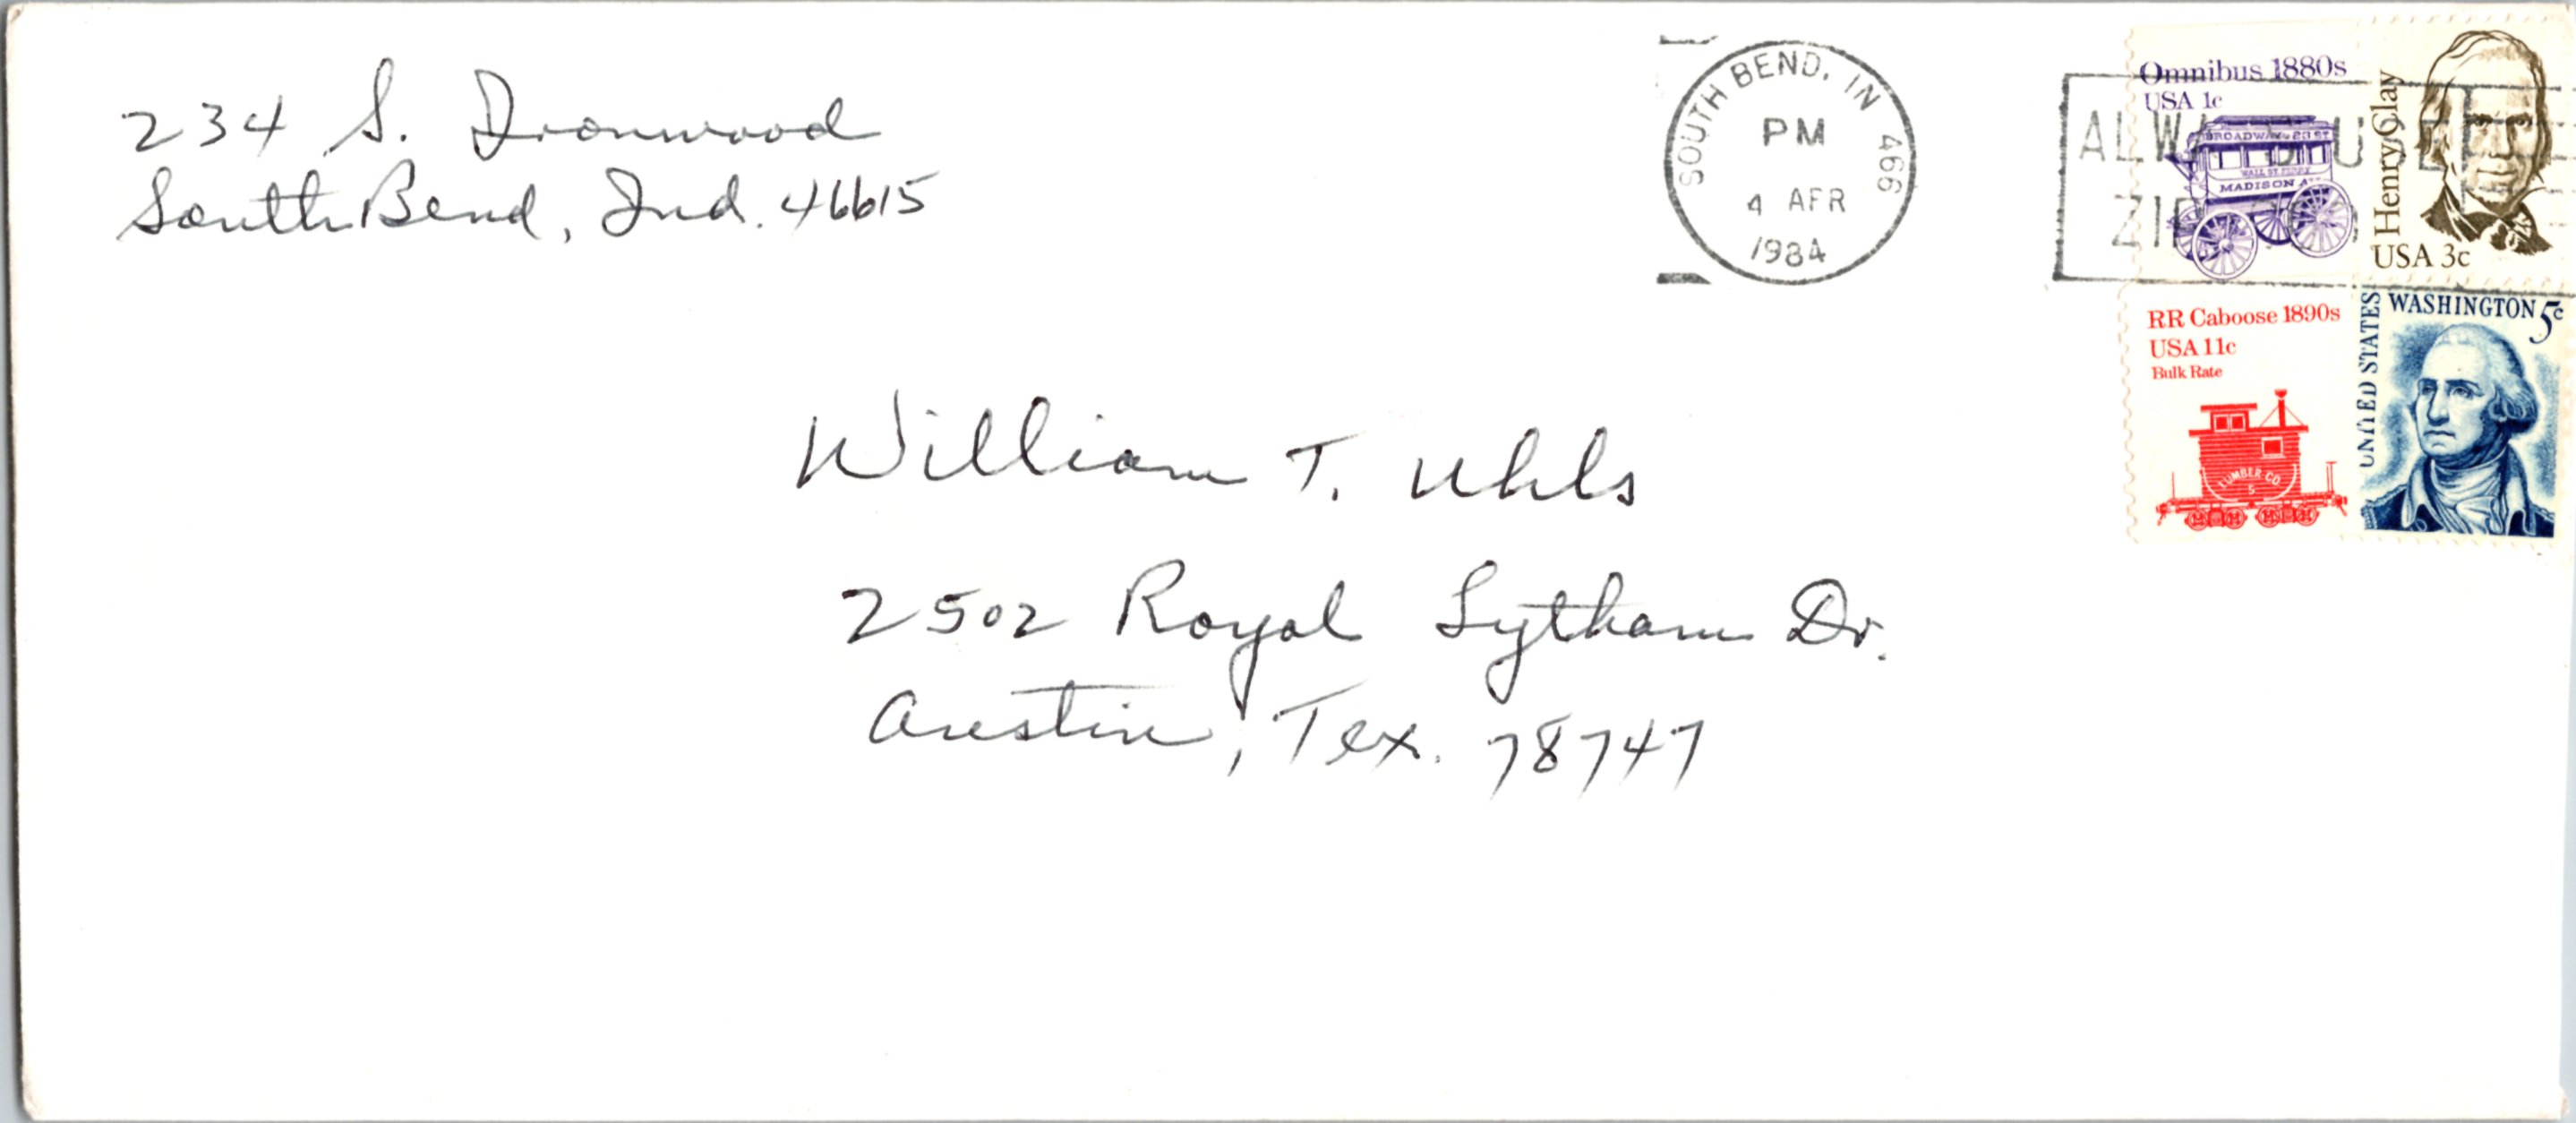 234 S. Ironwood
South Bend, Ind. 46615
SOUTH BEND, IN 466
PM
4 APR
1984
ALWAYS USE
ZIP
Omnibus 1880s
USA 1c
BROADWAY & 23 ST
WALL ST. FERRY
MADISON AV
Henry Clay
USA 3c
RR Caboose 1890s
USA 11c
Bulk Rate
LUMBER CO.
5
UNITED STATES
WASHINGTON 5c
William T. Uhls
2502 Royal Lytham Dr.
Austin, Tex. 78747